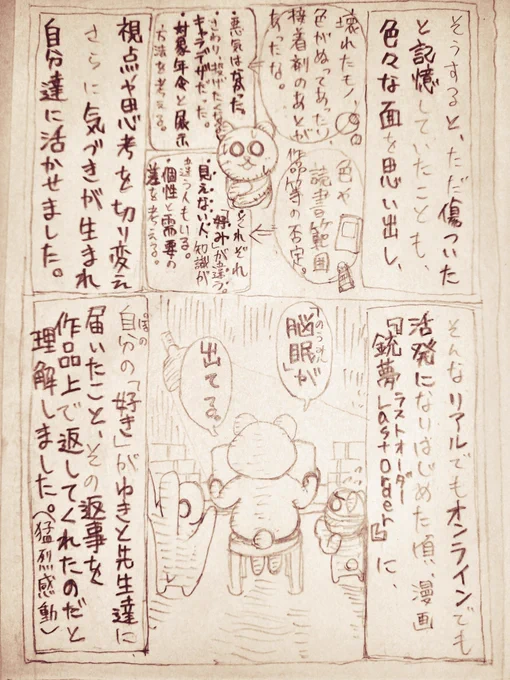 そうすると、ただ傷ついた
と記憶していたことも、
色々な面を思い出し、
壊れたモノ、
色がぬってあったり
接着剤のあとが
あったな。
色や
読書範囲
作品等の否定。
・悪気はなかった。
・さわり投げたくなる
キャラデザだった。
・対象年令と展示
方法を考える。
・それぞれ
「好み」が違う。
・見えない人、知識が
違う人もいる。
・個性と需要の
差を考える。
視点や思考を切り変え
さらに気づきが生まれ
自分達に活かせました。
そんなリアルでもオンラインでも
活発になりはじめた頃、漫画
『銃夢LastOrder』に、
ラストオーダー
「脳眠」が
のうみん
出てる。
自分の「好き」がゆきと先生達に
ぽの
届いたこと、その返事を
作品上で返してくれたのだと
理解しました。(猛烈感動)